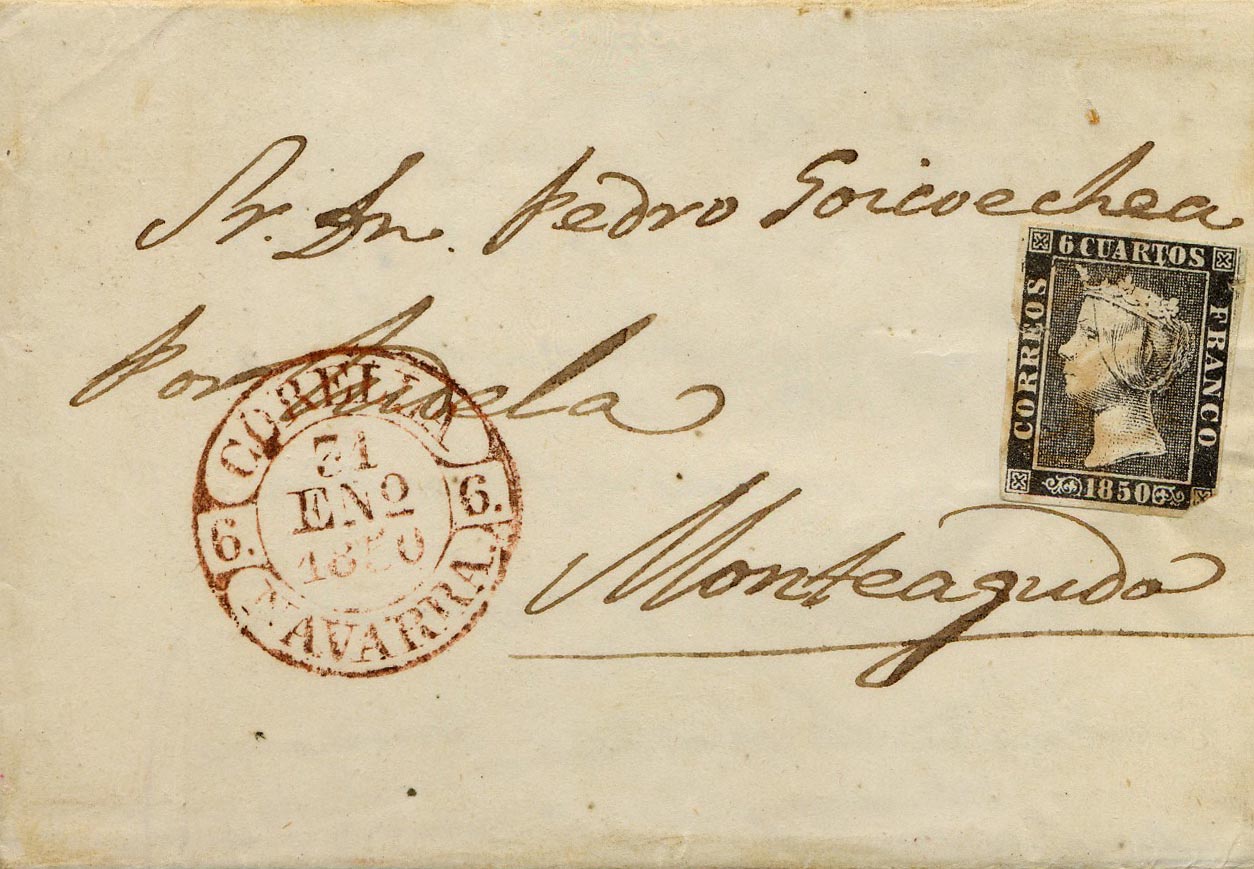 Sr. Dn. Pedro Goicoechea
6 CUARTOS
CORREOS
FRANCO
1850
por Tudela
CORELLA
31
ENO
1850
6.
6.
NAVARRA.
Monteagudo